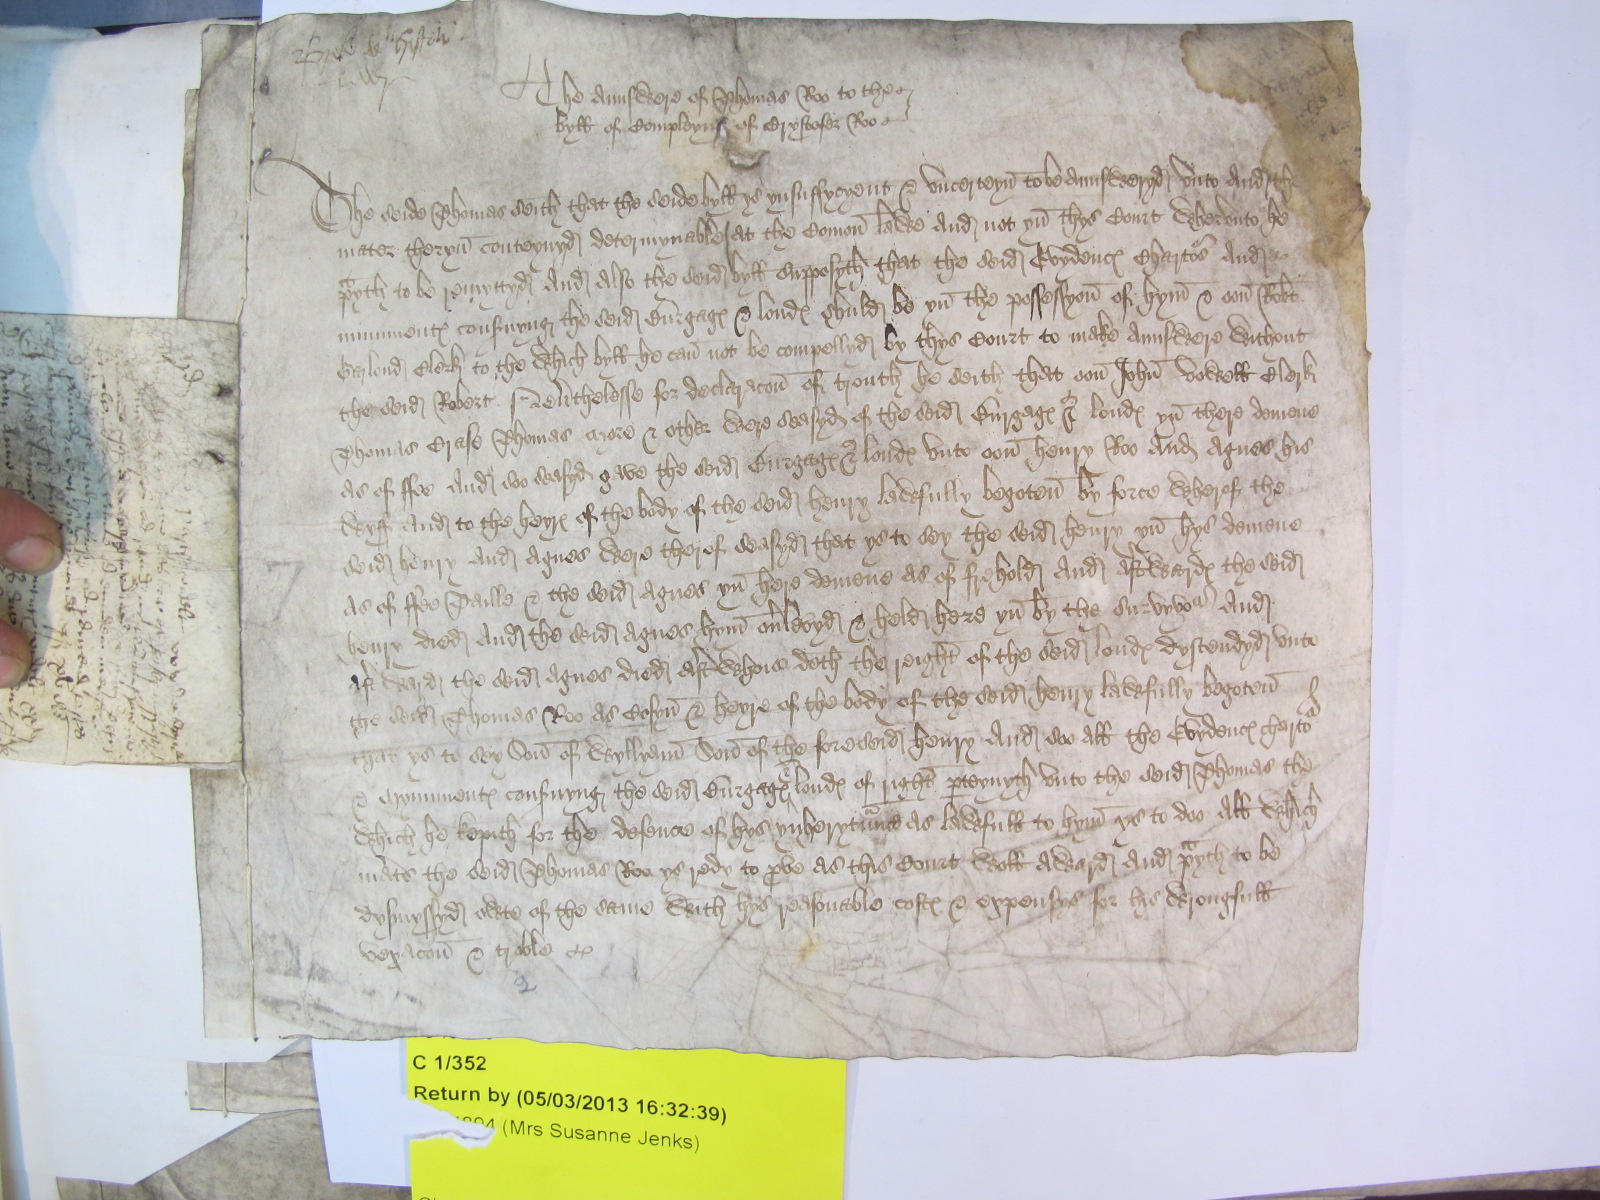 The Aunswere of Thomas Roo to the
byll of Compleynt of Crystofer Roo
The seide Thomas seith that the seide byll ys ynsuffycyent & uncerteyn to be aunsweryd unto And the
mater theryn conteynyd determynable at the Comon lawe And not yn thys Court wherunto he
prayth to be remyttyd And also the seid byll supposyth that the seid Evydences Chartors And
minimentes consernyng the seid Burgages & londes shuld be yn the possessyon of hym & oon Robt
Clerk to the which byll he can not be compellyd by thys Court to make Aunswere without
the seid Robert Neverthelesse for declaracon of trouth he seith that oon John Vowell Clerk
Thomas Crase Thomas More & other were seasyd of the seid Burgages & londes yn there demene
as of ffee And soo seasyd gave the seid Burgages & londes unto oon henry Roo And Agnes his
wyff And to the heyres of the body of the seid henry lawfully begoten by force wherof the
seid henry And Agnes were therof seasyd that ys to sey the seid henry yn hys demene
as of ffee Taille & the seid Agnes yn here demene as of frehold And afterwardes the seid
henry died And the seid Agnes hym overlevyd & held here yn by the survyvor And
afterward the seid Agnes died after whois deth the reight of the seid londes dyscendyd unto
the seid Thomas Roo as Cosyn & heyre of the body of the seid henry lawfully begoten
that ys to sey Son of Wyllyam Son of the foreseid henry And soo all the Evydences chartors
& mynumentes consernyng the seid Burgages & londes of right perteynyth unto the seid Thomas the
which he kepith for the defence of hys ynherytaunce as lawfull to hym ys to doo All which
maters the seid Thomas Roo ys redy to prove as this Court woll Award And prayth to be
dysmyssyd owte of the same with hys reasonable costes & expensys for his wrongfull
vexacon & troble &c
2
C 1/352
Return by (05/03/2013 16:32:39)
(Mrs Susanne Jenks)